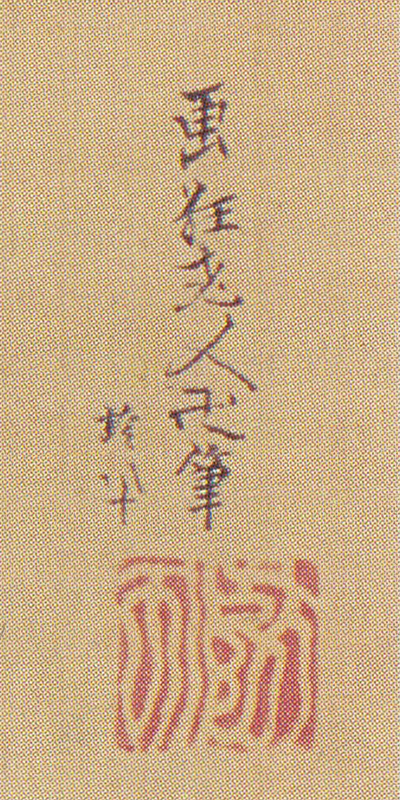 画狂老人卍筆
齢八十